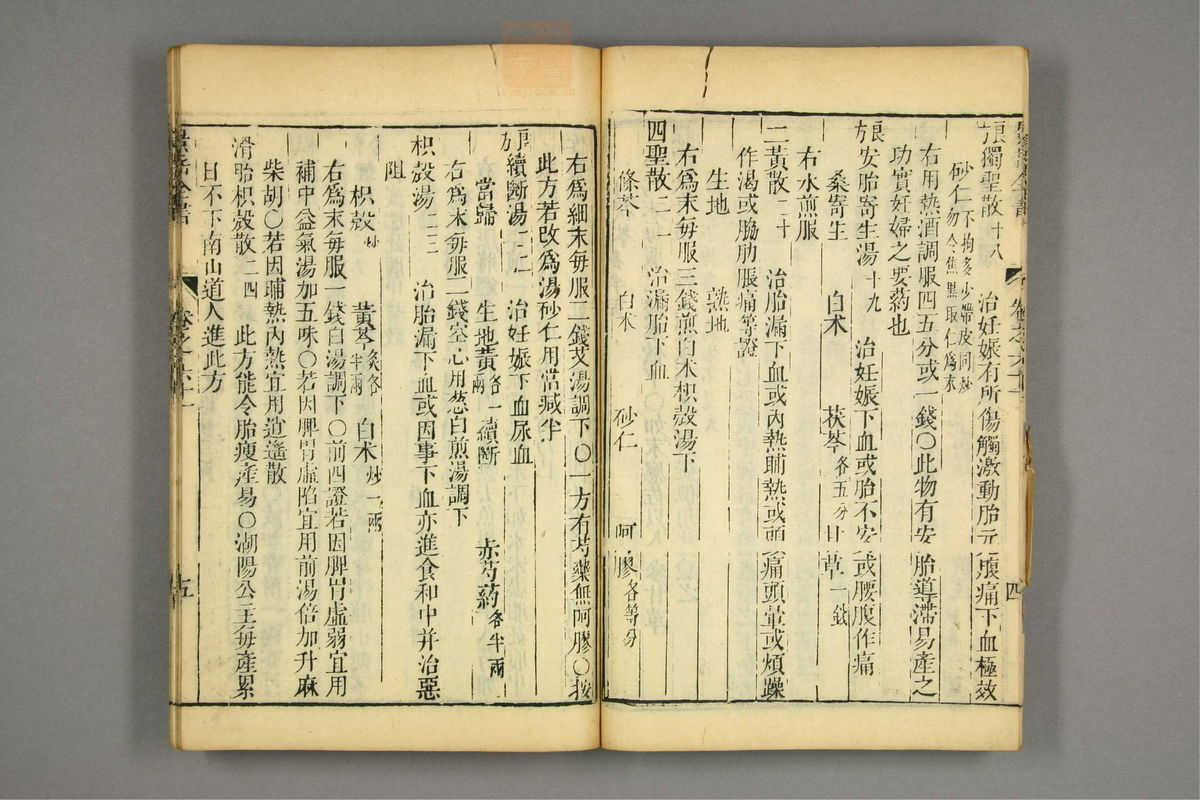 良方獨聖散十八 治妊娠有所傷觸激動胎元腹痛下血極效
砂仁不拘多少帶皮同炒勿令焦黑取仁爲末
右用熱酒調服四五分或一錢〇此物有安胎導滯易產之
功實妊婦之要葯也
良方安胎寄生湯十九 治妊娠下血或胎不安或腰腹作痛
桑寄生 白朮 茯苓各五分 甘草一錢
右水煎服
二黃散二十 治胎漏下血或內熱晡熱或頭痛頭暈或煩躁
作渴或脇肋脹痛等證
生地 熟地
右爲末每服三錢煎白朮枳殼湯下
四聖散二一 治漏胎下血
條芩 白朮 砂仁 阿膠各等分
右爲細末每服二錢艾湯調下〇一方有芍藥無阿膠〇按
此方若改爲湯砂仁用當減半
良方續斷湯二二 治妊娠下血尿血
當歸 生地黃各一兩 續斷 赤芍葯各半兩
右爲末每服二錢空心用葱白煎湯調下
枳殼湯二三 治胎漏下血或因事下血亦進食和中并治惡
阻
枳殼炒 黃芩炙各半兩 白朮炒一兩
右爲末每服一錢白湯調下〇前四證若因脾胃虛弱宜用
補中益氣湯加五味〇若因脾胃虛陷宜用前湯倍加升麻
柴胡〇若因晡熱內熱宜用逍遙散
滑胎枳殼散二四 此方能令胎瘦產易〇湖陽公主每產累
日不下南山道人進此方
卷之六十一
五
四